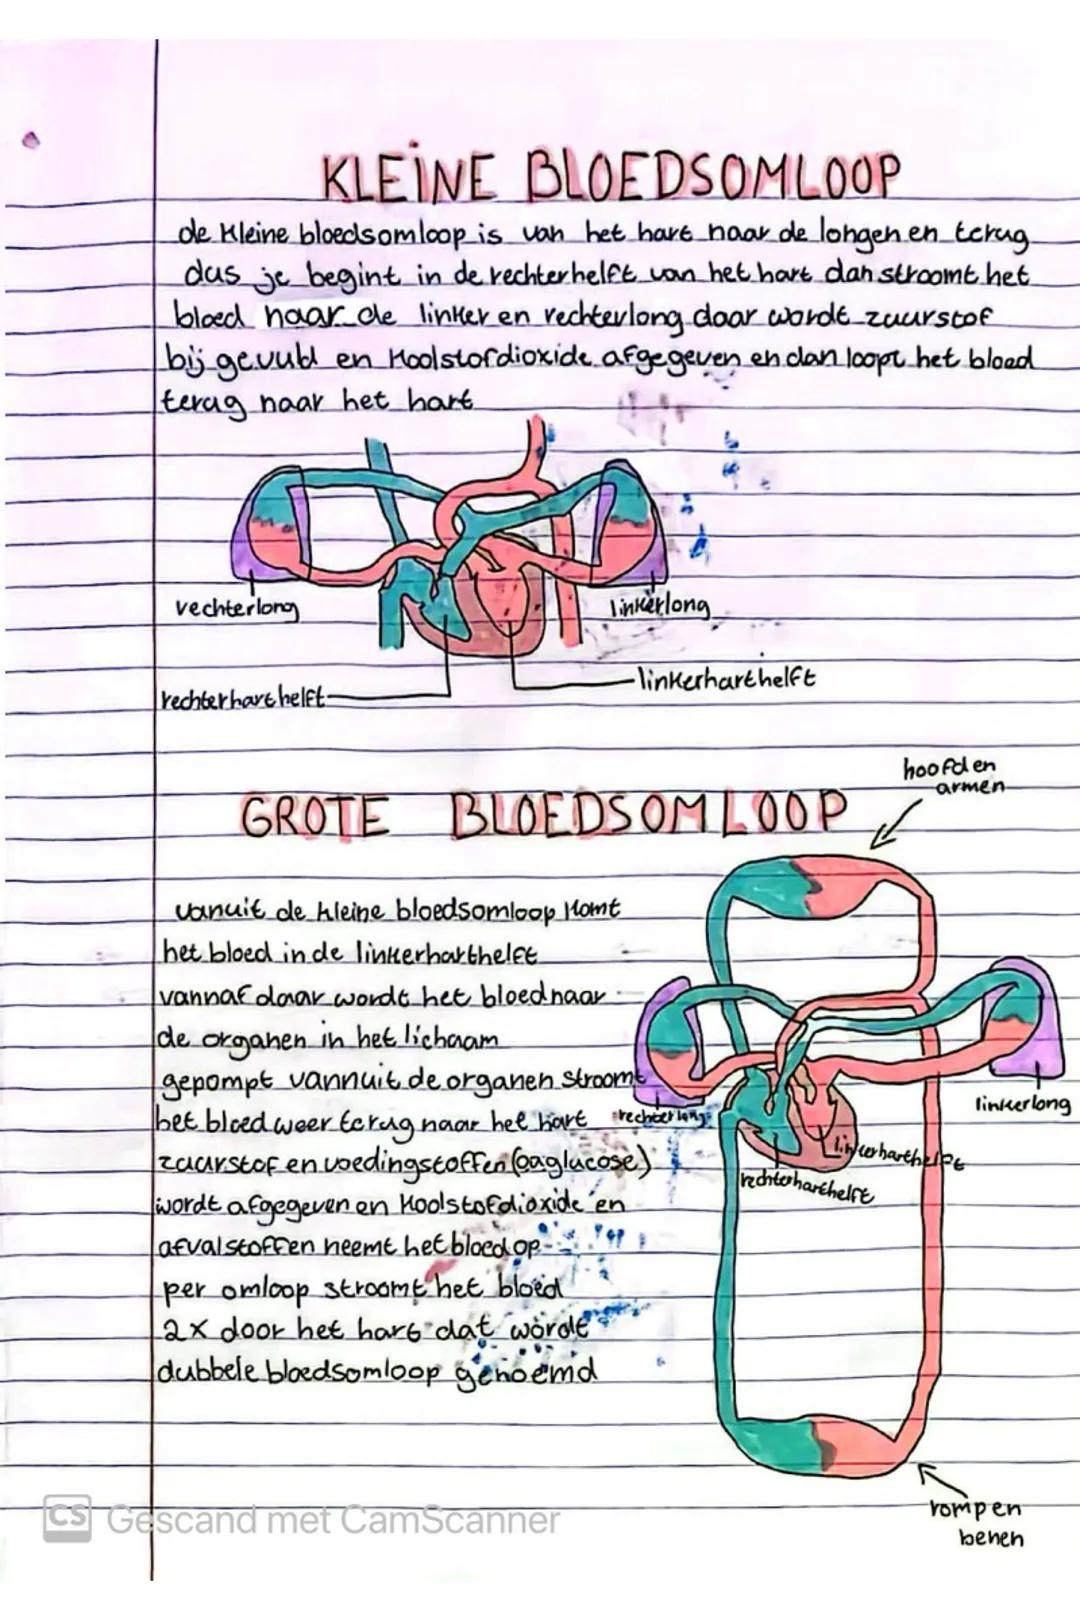 KLEINE BLOEDSOMLOOP
de kleine bloedsomloop is van het hart naar de longen en terug
dus je begint in de rechterhelft van het hart dan stroomt het
bloed naar de linker en rechterlong daar wordt zuurstof
bij gevuld en koolstofdioxide afgegeven en dan loopt het bloed
terug naar het hart
rechterlong
linkerlong
rechterharthelft
linkerharthelft
hoofd en
armen
GROTE BLOEDSOMLOOP
vanuit de kleine bloedsomloop komt
het bloed in de linkerharthelft
vannaf daar wordt het bloed naar
de organen in het lichaam
gepompt vannuit de organen stroomt
het bloed weer terug naar het hart
zuurstof en voedingstoffen (oa glucose)
wordt afgegeven en koolstofdioxide en
afvalstoffen neemt het bloed op
per omloop stroomt het bloed
2x door het hart dat wordt
dubbele bloedsomloop genoemd
rechterlong
linkerlong
linkerharthelft
rechterharthelft
romp en
benen
CS Gescand met CamScanner